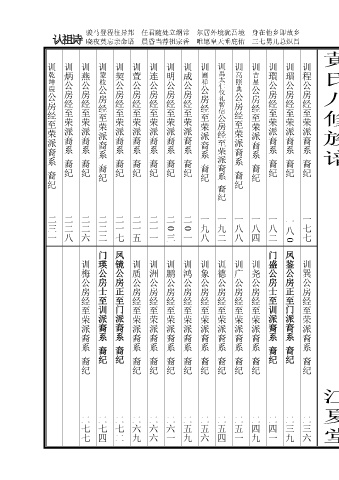 认祖诗
骏马登程往异邦 任寻随处立纲常
尔居外境犹吾境 身在他乡即故乡
朝夜莫忘亲命语 晨昏当荐祖宗香
唯愿皇天垂庇佑 三七男儿总炽昌
黄氏人修族谱
江夏堂
训程公房经至荣派裔系 裔纪 七七
训瑞公房经至荣派裔系 裔纪 八〇
训瑁公房经至荣派裔系 裔纪 八二
公房经至荣派裔系 裔纪 八四
公房经至荣派裔系 裔纪 八八
公房经至荣派裔系 裔纪 九一
公房经至荣派裔系 裔纪 九八
训成公房经至荣派裔系 裔纪 一〇一
训明公房经至荣派裔系 裔纪 一〇三
训连公房经至荣派裔系 裔纪 一一一
训萱公房经至荣派裔系 裔纪 一一五
训契公房经至荣派裔系 裔纪 一一七
公房经至荣派裔系 裔纪 一二二
训燕公房经至荣派裔系 裔纪 一二六
训炳公房经至荣派裔系 裔纪 一二八
训乾坤震公房经至荣派裔系 裔纪 一三一
训巽公房经至荣派裔系 裔纪 一三六
凤鉴公房正至门派裔系 裔纪 一三九
门盛公房士至训派裔系 裔纪 一四一
训尧公房经至荣派裔系 裔纪 一四九
训广公房经至荣派裔系 裔纪 一五一
训德公房经至荣派裔系 裔纪 一五四
训象公房经至荣派裔系 裔纪 一五六
训鸿公房经至荣派裔系 裔纪 一五九
训鹏公房经至荣派裔系 裔纪 一六一
训洲公房经至荣派裔系 裔纪 一六六
训质公房经至荣派裔系 裔纪 一六九
凤镜公房正至门派裔系 裔纪 一七二
门瑛公房士至训派裔系 裔纪 一七四
训梅公房经至荣派裔系 裔纪 一七七